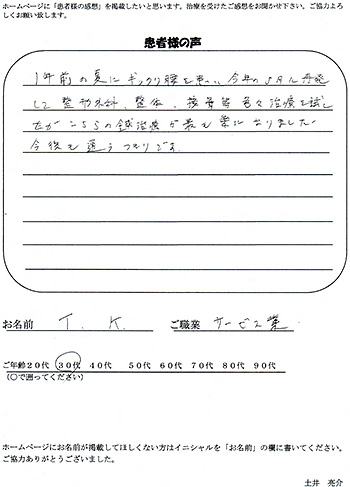 ホームページに「患者様の感想」を掲載したいと思います。治療を受けたご感想をお聞かせ下さい。ご協力よろ
しくお願い致します。
患者様の声
1年前の夏にギックリ腰を患い、今年の5月に再発
して整形外科、整体、接骨等色々治療を試し
たがこちらの鍼治療が最も楽になりました
今後も通うつもりです。
お名前 T. K. ご職業 サービス業
ご年齢20代 30代 40代 50代 60代 70代 80代 90代
(〇で囲ってください)
ホームページにお名前が掲載してほしくない方はイニシャルを「お名前」の欄に書いてください。
ご協力ありがとうございました。
土井 亮介